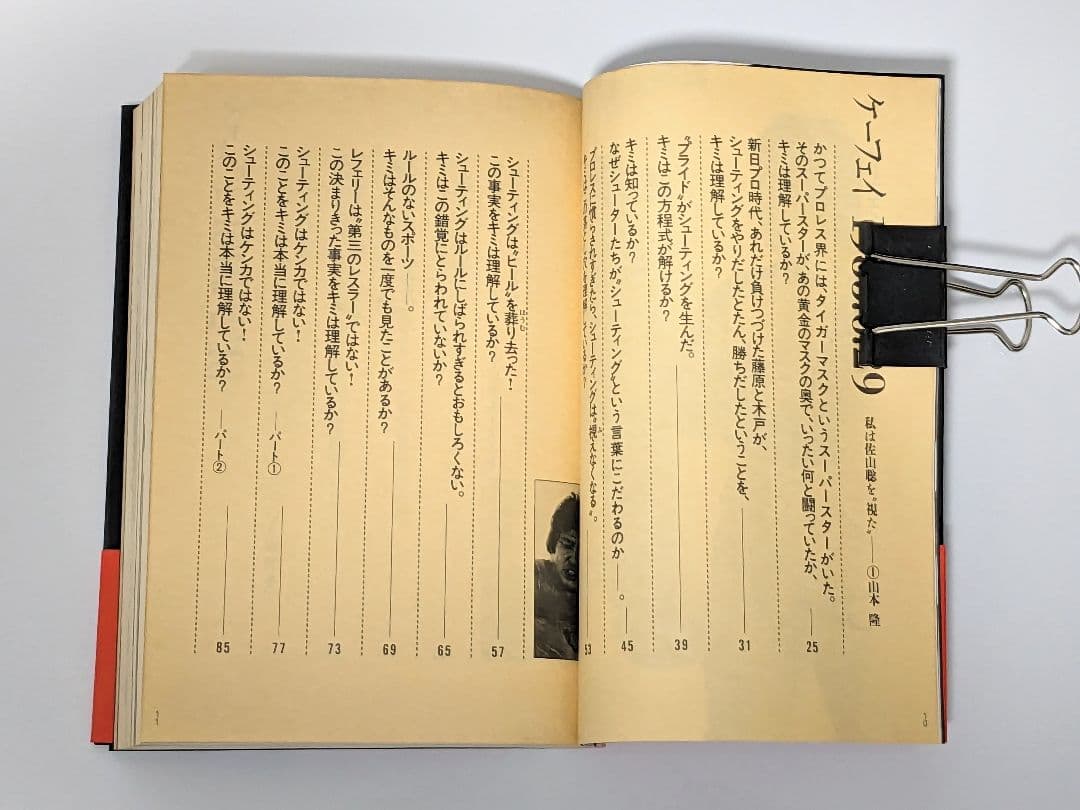 ケーフェイ
9
私は佐山聡を“視た”――①山本 隆
かつてプロレス界には、タイガーマスクというスーパースターがいた。
そのスーパースターが、あの黄金のマスクの奥で、いったい何と闘っていたか、
キミは理解しているか？
25
新日プロ時代、あれだけ負けつづけた藤原と木戸が、
シューティングをやりだしたとたん、勝ちだしたということを、
キミは理解しているか？
31
“プライド”がシューティングを生んだ。
キミはこの方程式が解けるか？
39
なぜシューターたちが“シューティング”という言葉にこだわるのか――。
キミは知っているか？
45
プロレスに慣らされすぎたら、シューティングは“視えなくなる”。
53
シューティングは“ヒール”を葬り去った！
ほうむ
この事実をキミは理解しているか？
57
シューティングはルールにしばられすぎるとおもしろくない。
キミはこの錯覚にとらわれていないか？
65
ルールのないスポーツ――。
キミはそんなものを一度でも見たことがあるか？
69
レフェリーは“第三のレスラー”ではない！
この決まりきった事実をキミは理解しているか？
73
シューティングはケンカではない！
このことをキミは本当に理解しているか？ ――パート①
77
シューティングはケンカではない！
このことをキミは本当に理解しているか？ ――パート②
85